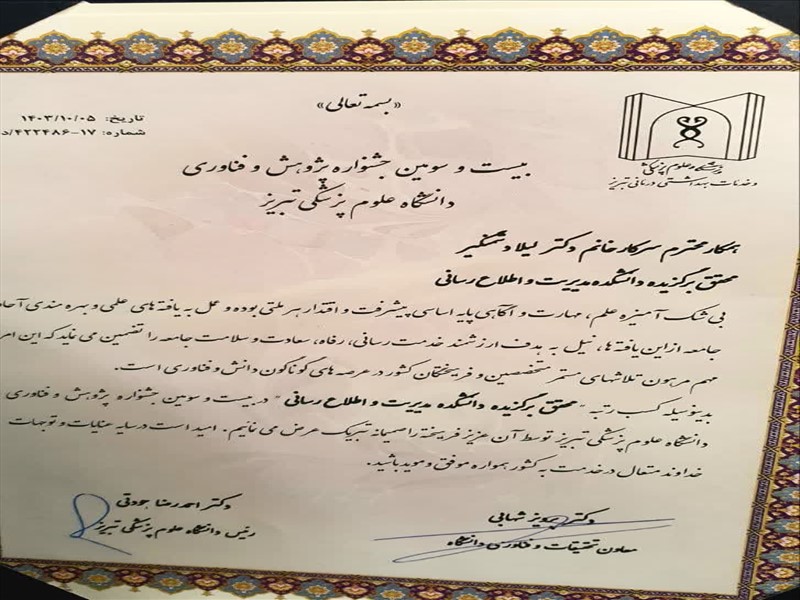 «بسمه تعالی»
تاریخ: ۱۴۰۳/۱۰/۰۵
شماره: ۱۷-۴۲۲۴۸۶/د
دانشگاه علوم پزشکی
و خدمات بهداشتی درمانی تبریز
بیست و سومین جشنواره پژوهش و فناوری
دانشگاه علوم پزشکی تبریز
همکار محترم سرکار خانم دکتر لیلا دشمنگیر
محقق برگزیده دانشکده مدیریت و اطلاع رسانی
بی شک آمیزه علم، مهارت و آگاهی پایه اساسی پیشرفت و اقتدار هر ملتی بوده و عمل به یافته های علمی و بهره مندی آحاد
جامعه از این یافته ها، نیل به هدف ارزشمند خدمت رسانی، رفاه، سعادت و سلامت جامعه را تضمین می نماید که این امر
مهم مرهون تلاشهای مستمر متخصصین و فرهیختگان کشور در عرصه های گوناگون دانش و فناوری است.
بدینوسیله کسب رتبه "محقق برگزیده دانشکده مدیریت و اطلاع رسانی" در بیست و سومین جشنواره پژوهش و فناوری
دانشگاه علوم پزشکی تبریز توسط آن عزیز فرهیخته را صمیمانه تبریک عرض می نمائیم. امید است در سایه عنایات و توجهات
خداوند متعال در خدمت به کشور همواره موفق و موید باشید.
دکتر پرویز شهابی
معاون تحقیقات و فناوری دانشگاه
دکتر احمدرضا جودتی
رئیس دانشگاه علوم پزشکی تبریز